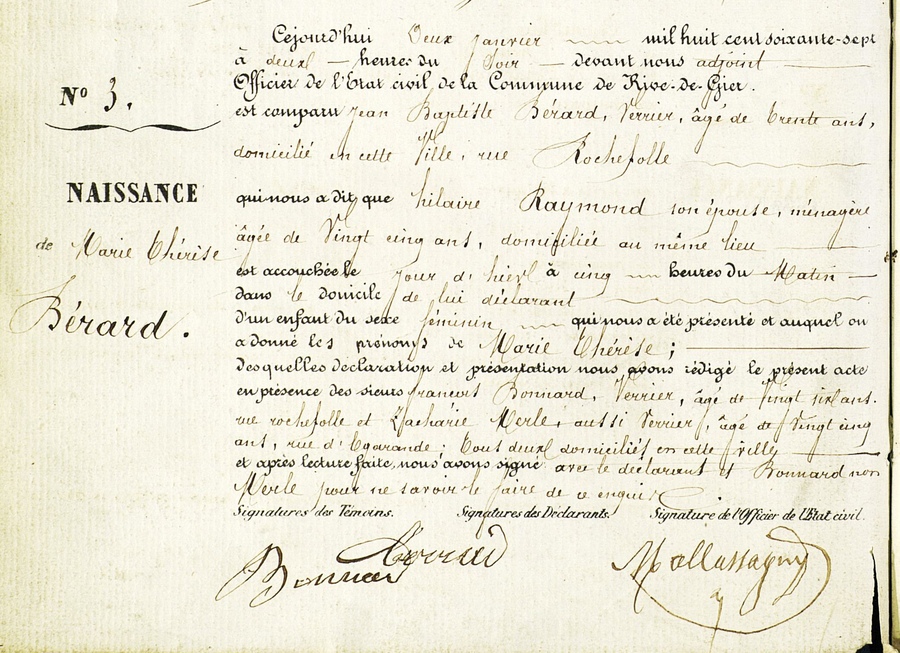 Cejourd'hui Deux janvier mil huit cent soixante-sept
à deux heures du Soir devant nous adjoint
Officier de l'Etat civil de la Commune de Rive-de-Gier.
Nº 3.
est comparu jean Baptiste Bérard, Verrier, âgé de trente ans,
domicilié en cette Ville, rue Rochefolle
NAISSANCE
qui nous a dit que hilaire Raymond son épouse, ménagère
âgée de Vingt cinq ans, domiciliée au même lieu
de Marie thérèse
est accouchée le jour d'hier à cinq heures du Matin
dans le domicile de lui déclarant
Bérard.
d'un enfant du sexe féminin qui nous a été présenté et auquel on
a donné les prénoms de Marie thérèse ;
desquelles déclaration et présentation nous avons rédigé le présent acte
en présence des sieurs francois Bonnard, Verrier, âgé de Vingt six ans.
rue rochefolle et Zacharie Merle, aussi Verrier, âgé de Vingt cinq
ans, rue d'Egarande ; tous deux domiciliés en cette ville
et après lecture faite, nous avons signé avec le déclarant et Bonnard non
Merle pour ne savoir le faire de ce enquis.
Signatures des Témoins. Signatures des Déclarants. Signature de l'Officier de l'Etat civil.
Bonnard